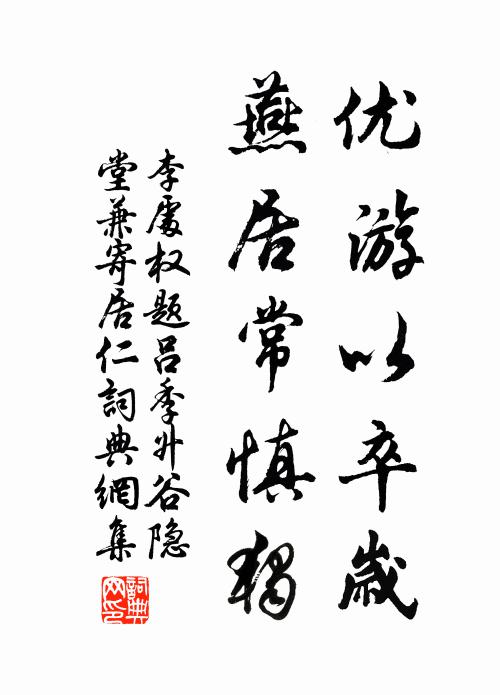 优游以卒歲
燕居常慎獨
李處权题吕季升谷隐
堂兼寄居仁詞典網集
詞典
网印